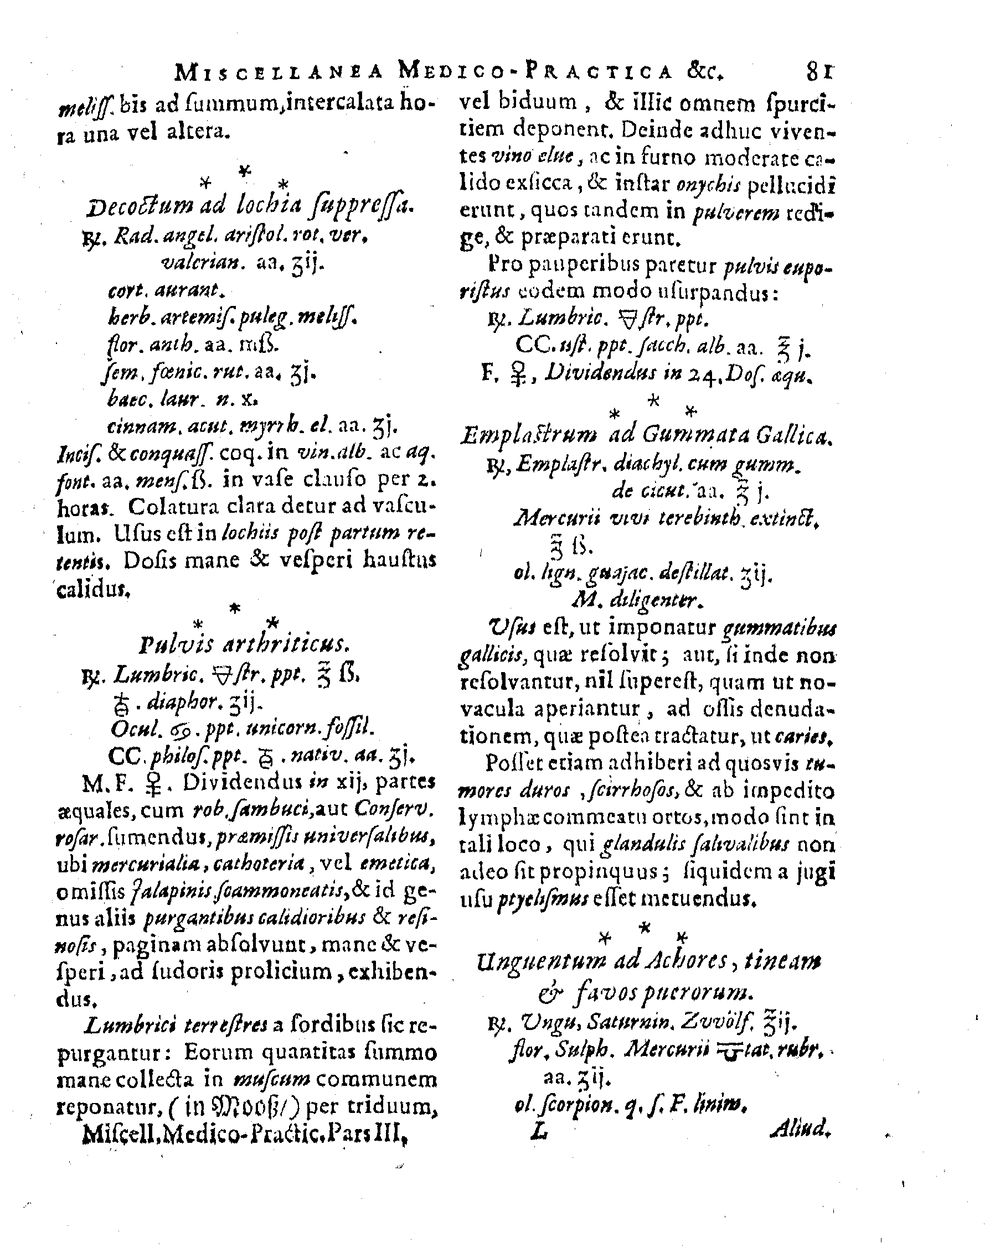 MISCELLANEA MEDICO-PRACTICA &c. 81
meliſſ. bis ad ſummum, intercalata ho-
ra una vel altera.
* * *
Decoctum ad lochia ſuppreſſa.
℞. Rad. angel. ariſtol. rot. ver.
valerian. aa. ʒij.
cort. aurant.
herb. artemiſ. puleg. meliſſ.
flor. anth. aa. mß.
ſem. fœnic. rut. aa. ʒj.
bacc. laur. n. x.
cinnam. acut. myrrh. el. aa. ʒj.
Inciſ. & conquaſſ. coq. in vin. alb. ac aq.
font. aa. menſ. ß. in vaſe clauſo per 2.
horas. Colatura clara detur ad vaſcu-
lum. Uſus eſt in lochiis poſt partum re-
tentis. Doſis mane & veſperi hauſtus
calidus.
* * *
Pulvis arthriticus.
℞. Lumbric. 🜃ſtr. ppt. ℥ ß.
♁. diaphor. ʒij.
Ocul. ♋. ppt. unicorn. foſſil.
CC. philoſ. ppt. . nativ. aa. ʒj.
M. F. ♀. Dividendus in xij, partes
æquales, cum rob. ſambuci, aut Conſerv.
roſar. ſumendus, præmiſſis univerſalibus,
ubi mercurialia, cathoteria, vel emetica,
omiſſis Jalapinis, ſcammoneatis, & id ge-
nus aliis purgantibus calidioribus & reſi-
noſis, paginam abſolvunt, mane & ve-
ſperi, ad ſudoris prolicium, exhiben-
dus.
Lumbrici terreſtres a ſordibus ſic re-
purgantur: Eorum quantitas ſummo
mane collecta in muſcum communem
reponatur, (in Mooß/) per triduum,
Miſcell. Medico-Practic. Pars III.
vel biduum, & illic omnem ſpurci-
tiem deponent. Deinde adhuc viven-
tes vino elue, ac in furno moderate ca-
lido exſicca, & inſtar onychis pellucidi
erunt, quos tandem in pulverem redi-
ge, & præparati erunt.
Pro pauperibus paretur pulvis eupo-
riſtus eodem modo uſurpandus:
℞. Lumbric. 🜃ſtr. ppt.
CC. uſt. ppt. ſacch. alb. aa. ℥ j.
F. ♀, Dividendus in 24. Doſ. æqu.
* * *
Emplaſtrum ad Gummata Gallica.
℞, Emplaſtr. diachyl. cum gumm.
de cicut. aa. ℥ j.
Mercurii vivi terebinth. extinct.
℥ ß.
ol. lign. guajac. deſtillat. ʒij.
M. diligenter.
Uſus eſt, ut imponatur gummatibus
gallicis, quæ reſolvit; aut, ſi inde non
reſolvantur, nil ſupereſt, quam ut no-
vacula aperiantur, ad oſſis denuda-
tionem, quæ poſtea tractatur, ut caries.
Poſſet etiam adhiberi ad quosvis tu-
mores duros, ſcirrhoſos, & ab impedito
lymphæ commeatu ortos, modo ſint in
tali loco, qui glandulis ſalivalibus non
adeo ſit propinquus; ſiquidem a jugi
uſu ptyeliſmus eſſet metuendus.
* * *
Unguentum ad Achores, tineam
& favos puerorum.
℞. Ungu. Saturnin. Zvvölf. ℥ij.
flor. Sulph. Mercurii tat. rubr.
aa. ʒij.
ol. ſcorpion. q. ſ. F. linim.
L Aliud.